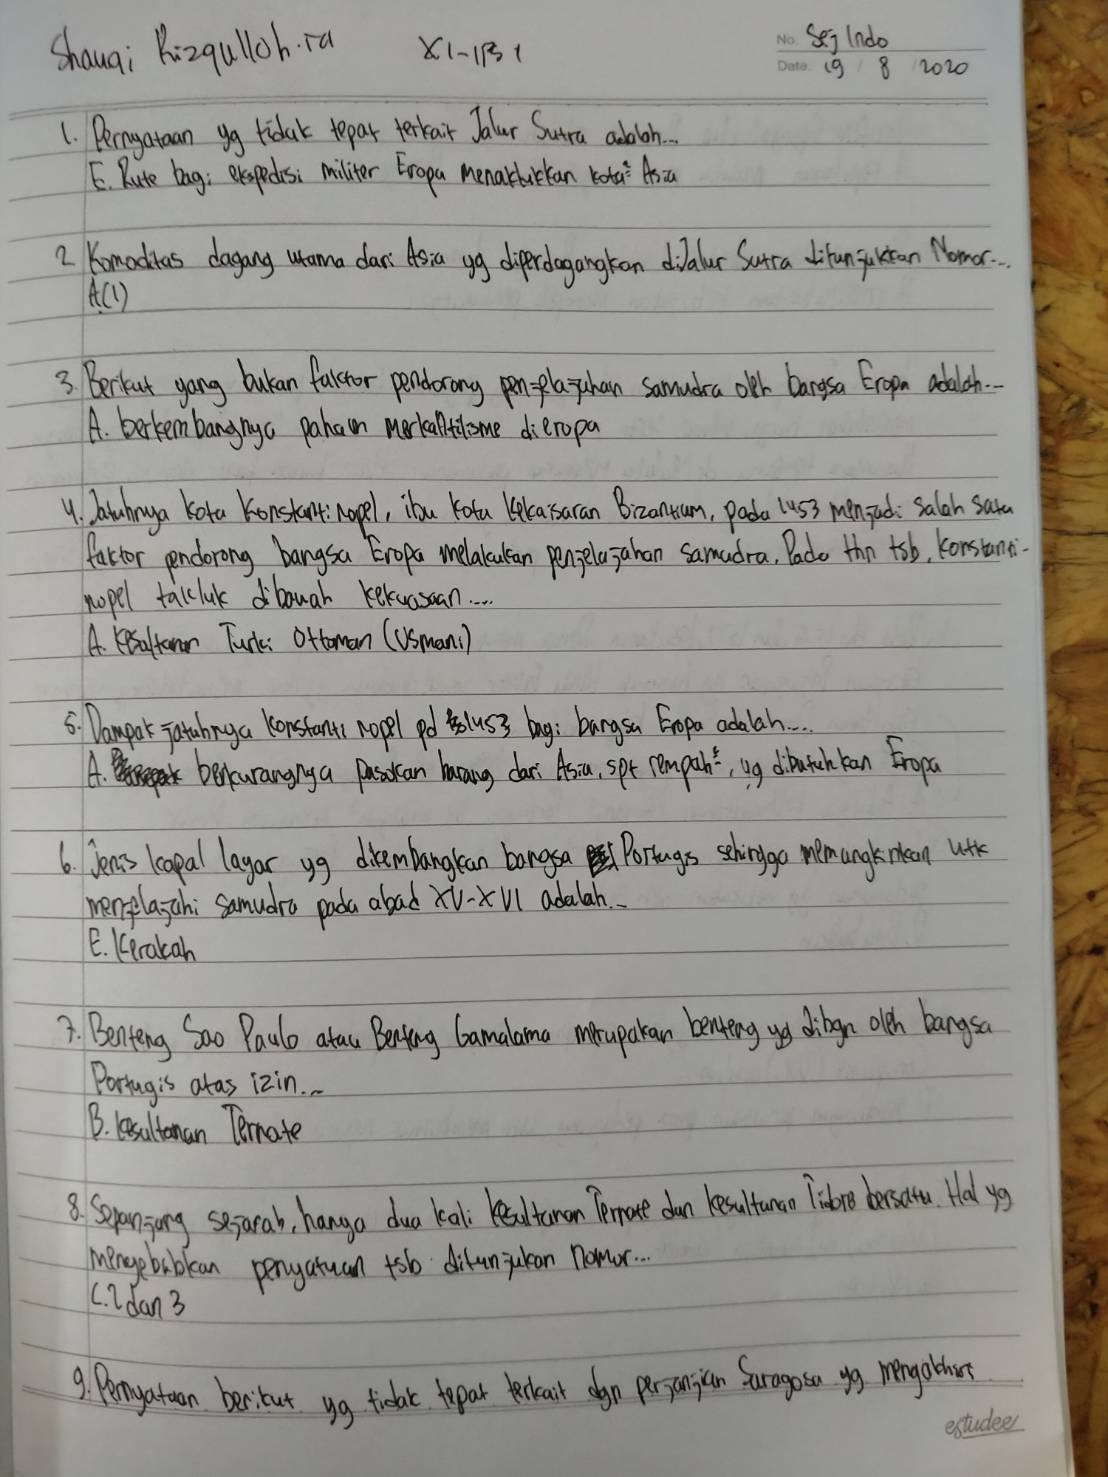 Shauqi Rizqulloh.ra XI-IBI No. Sej Indo
Date. 19 8 2020
1. Pernyataan yg tidak tepat terkait Jalur Sutra adalah...
E. Rute bagi ekspedisi militer Eropa menaklukkan kota² Asia
2 Komoditas dagang utama dari Asia yg diperdagangkan diJalur Sutra ditunjukkan Nomor...
A(1)
3. Berikut yang bukan faktor pendorong penjelajahan samudra oleh bangsa Eropa adalah...
A. berkembangnya paham Merkantilisme dieropa
4. Jatuhnya kota Konstantinopel, ibu kota kekaisaran Bizantium, pada 1453 menjadi salah satu
faktor pendorong bangsa Eropa melakukan penjelajahan samudra. Pada thn tsb, konstanti-
nopel takluk dibawah kekuasaan....
A. kesultanan Turki Ottoman (Usmani)
5. Dampak jatuhnya konstanti nopel pd 1453 bagi bangsa Eropa adalah....
A. berkurangnya pasokan barang dari Asia, spt rempah², yg dibutuhkan Eropa
6. Jenis kapal layar yg dikembangkan bangsa Portugis sehingga memungkinkan utk
menjelajahi samudra pada abad XV-XVI adalah...
E. Kerakah
7. Benteng Sao Paulo atau Benteng Gamalama merupakan benteng yg dibgn oleh bangsa
Portugis atas izin...
B. kesultanan Ternate
8. Sepanjang sejarah, hanya dua kali kesultanan Ternate dan kesultanan Tidore bersatu. Hal yg
menyebabkan penyatuan tsb ditunjukan nomor...
C. 2 dan 3
9. Pernyataan berikut yg tidak tepat terkait dgn perjanjian Saragosa yg mengakhiri
estudee